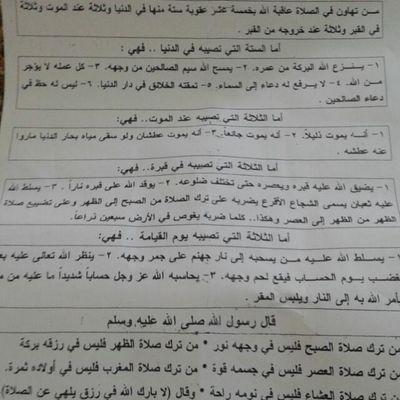 من تهاون في الصلاة عاقبة الله بخمسة عشر عقوبة ستة منها في الدنيا وثلاثة عند الموت وثلاثة
في القبر وثلاثة عند خروجه من القبر .
أما الستة التي تصيبه في الدنيا .. فهي:
١- ينزع الله البركة من عمره. ٢- يمسح الله سيم الصالحين من وجهه. ٣- كل عمله لا يؤجر
من الله. ٤- لا يرفع له دعاء إلى السماء. ٥- تمقته الخلائق في دار الدنيا. ٦- ليس له حظ في
دعاء الصالحين .
أما الثلاثة التي تصيبه عند الموت.. فهي:
١- أنه يموت ذليلاً. ٢- أنه يموت جائعاً. ٣- أنه يموت عطشان ولو سقى مياه بحار الدنيا ماروا
عنه عطشه .
أما الثلاثة التي تصيبه في قبرة.. فهي:
١- يضيق الله عليه قبره ويحصره حتى تختلف ضلوعه. ٢- يوقد الله على قبره ناراً . ٣- يسلط الله
عليه ثعبان يسمى الشجاع الأقرع يضربه على ترك صلاة من الصبح إلى الظهر وعلى تضييع صلاة
الظهر من الظهر إلى العصر وهكذا.. كلما ضربه يغوص في الأرض سبعين ذراعاً.
أما الثلاثة التي تصيبه يوم القيامة .. فهي:
١- يسلط الله عليه من يسحبه إلى نار جهنم على جمر وجهه. ٢- ينظر الله تعالى عليه بع
غضب يوم الحساب فيقع لحم وجهه. ٣- يحاسبه الله عز وجل حساباً شديداً ما عليه من م
يأمر الله به إلى النار وبئس المقر .
قال رسول الله صلى الله عليه وسلم
من ترك صلاة الصبح فليس في وجهه نور * من ترك صلاة الظهر فليس في رزقه بركة
من ترك صلاة العصر فليس في جسمه قوة * من ترك صلاة المغرب فليس في أولاده ثمرة.
من ترك صلاة العشاء فليس في نومه راحة * وقال (لا بارك الله في رزق يلهي عن الصلاة)